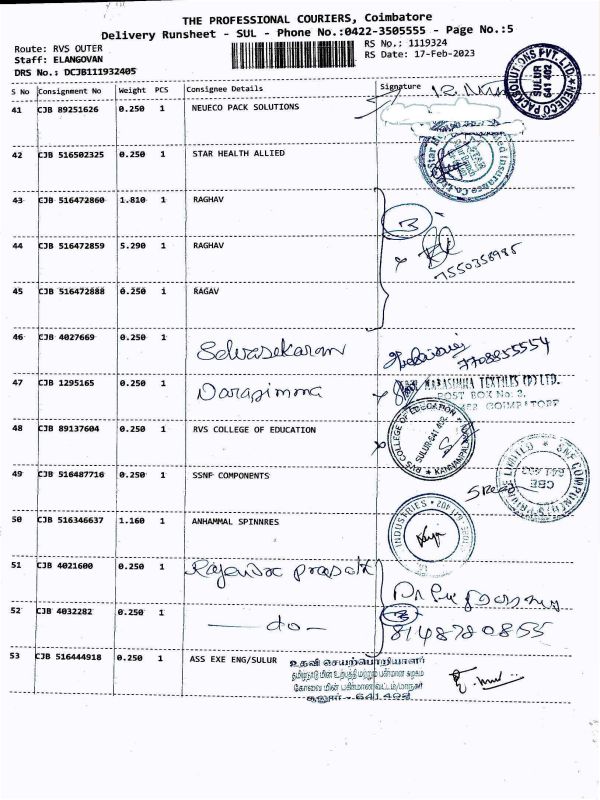 THE PROFESSIONAL COURIERS, Coimbatore
Delivery Runsheet - SUL - Phone No.:0422-3505555 - Page No.:5
Route: RVS OUTER
RS No.: 1119324
Staff: ELANGOVAN
RS Date: 17-Feb-2023
DRS No.: DCJB111932405
S No Consignment No Weight PCS Consignee Details Signature
41 CJB 89251626 0.250 1 NEUECO PACK SOLUTIONS
NEUECO PACK SOLUTIONS PVT. LTD.
SULUR
641 402
42 CJB 516502325 0.250 1 STAR HEALTH ALLIED
43 CJB 516472860 1.810 1 RAGHAV
3
44 CJB 516472859 5.290 1 RAGHAV
7550358985
45 CJB 516472888 0.250 1 RAGAV
46 CJB 4027669 0.250 1 Selvasekaran
7708855554
47 CJB 1295165 0.250 1 Narasimma
NARASIMHA TEXTILES (P) LTD.
POST BOX No: 3,
COIMBATORE
48 CJB 89137604 0.250 1 RVS COLLEGE OF EDUCATION
RVS COLLEGE OF EDUCATION
SULUR-641 402
49 CJB 516487716 0.250 1 SSNF COMPONENTS
641 402
CBE
50 CJB 516346637 1.160 1 ANHAMMAL SPINNRES
INDUSTRIES
51 CJB 4021600 0.250 1 Rajendra prasath
52 CJB 4032282 0.250 1 — do —
3
8148780855
53 CJB 516444918 0.250 1 ASS EXE ENG/SULUR
உதவி செயற்பொறியாளர்
தமிழ்நாடு மின் உற்பத்தி மற்றும் பகிர்மான கழகம்
கோவை மின் பகிர்மான வட்டம்/மாநகர்
சூலூர் - 641 402